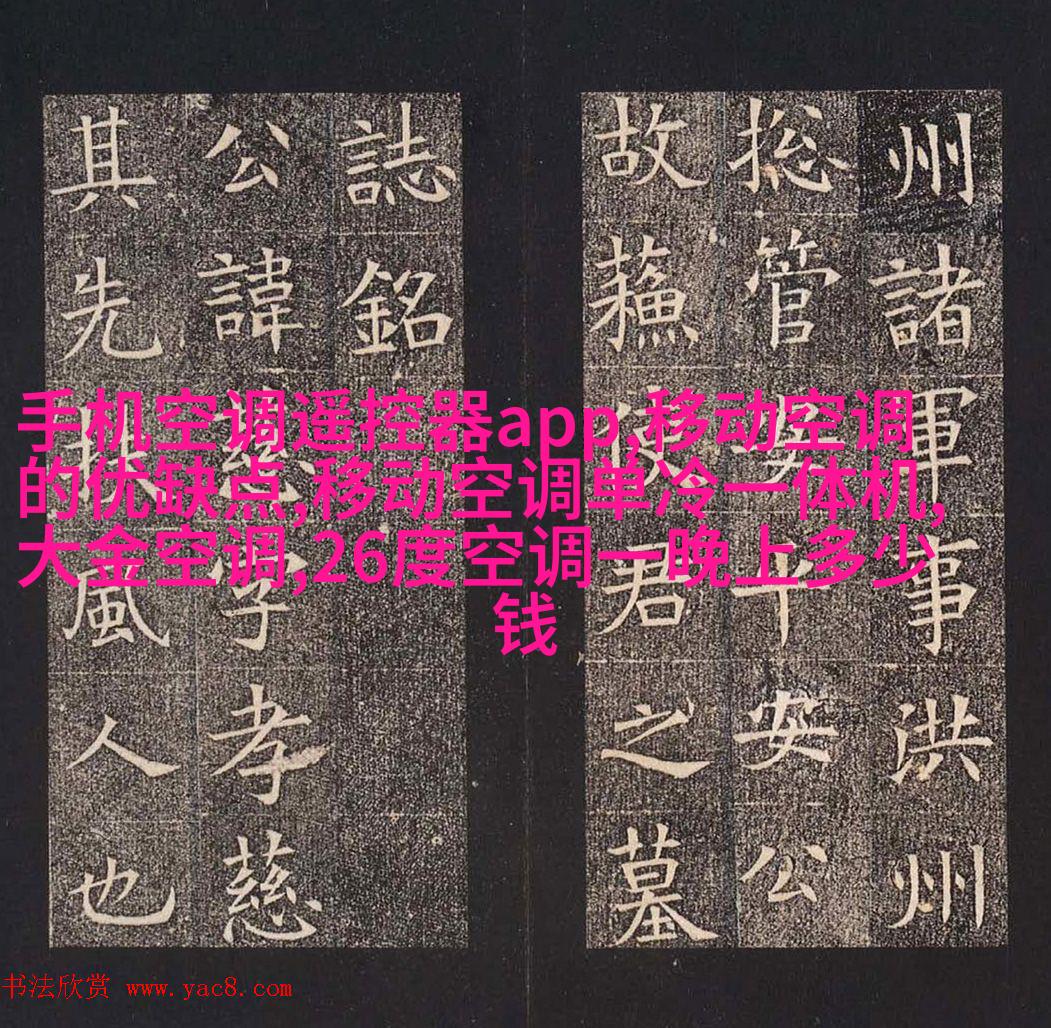 州諸軍事洪州
捴管安平安公
故蘓使君之墓
誌銘
公諱慈字孝慈
其先扶風人也
手机空调遥控器app,移动空调
的优缺点,移动空调单冷一体机,
大金空调,26度空调一晚上多少
钱
书法欣赏 www.yac8.com